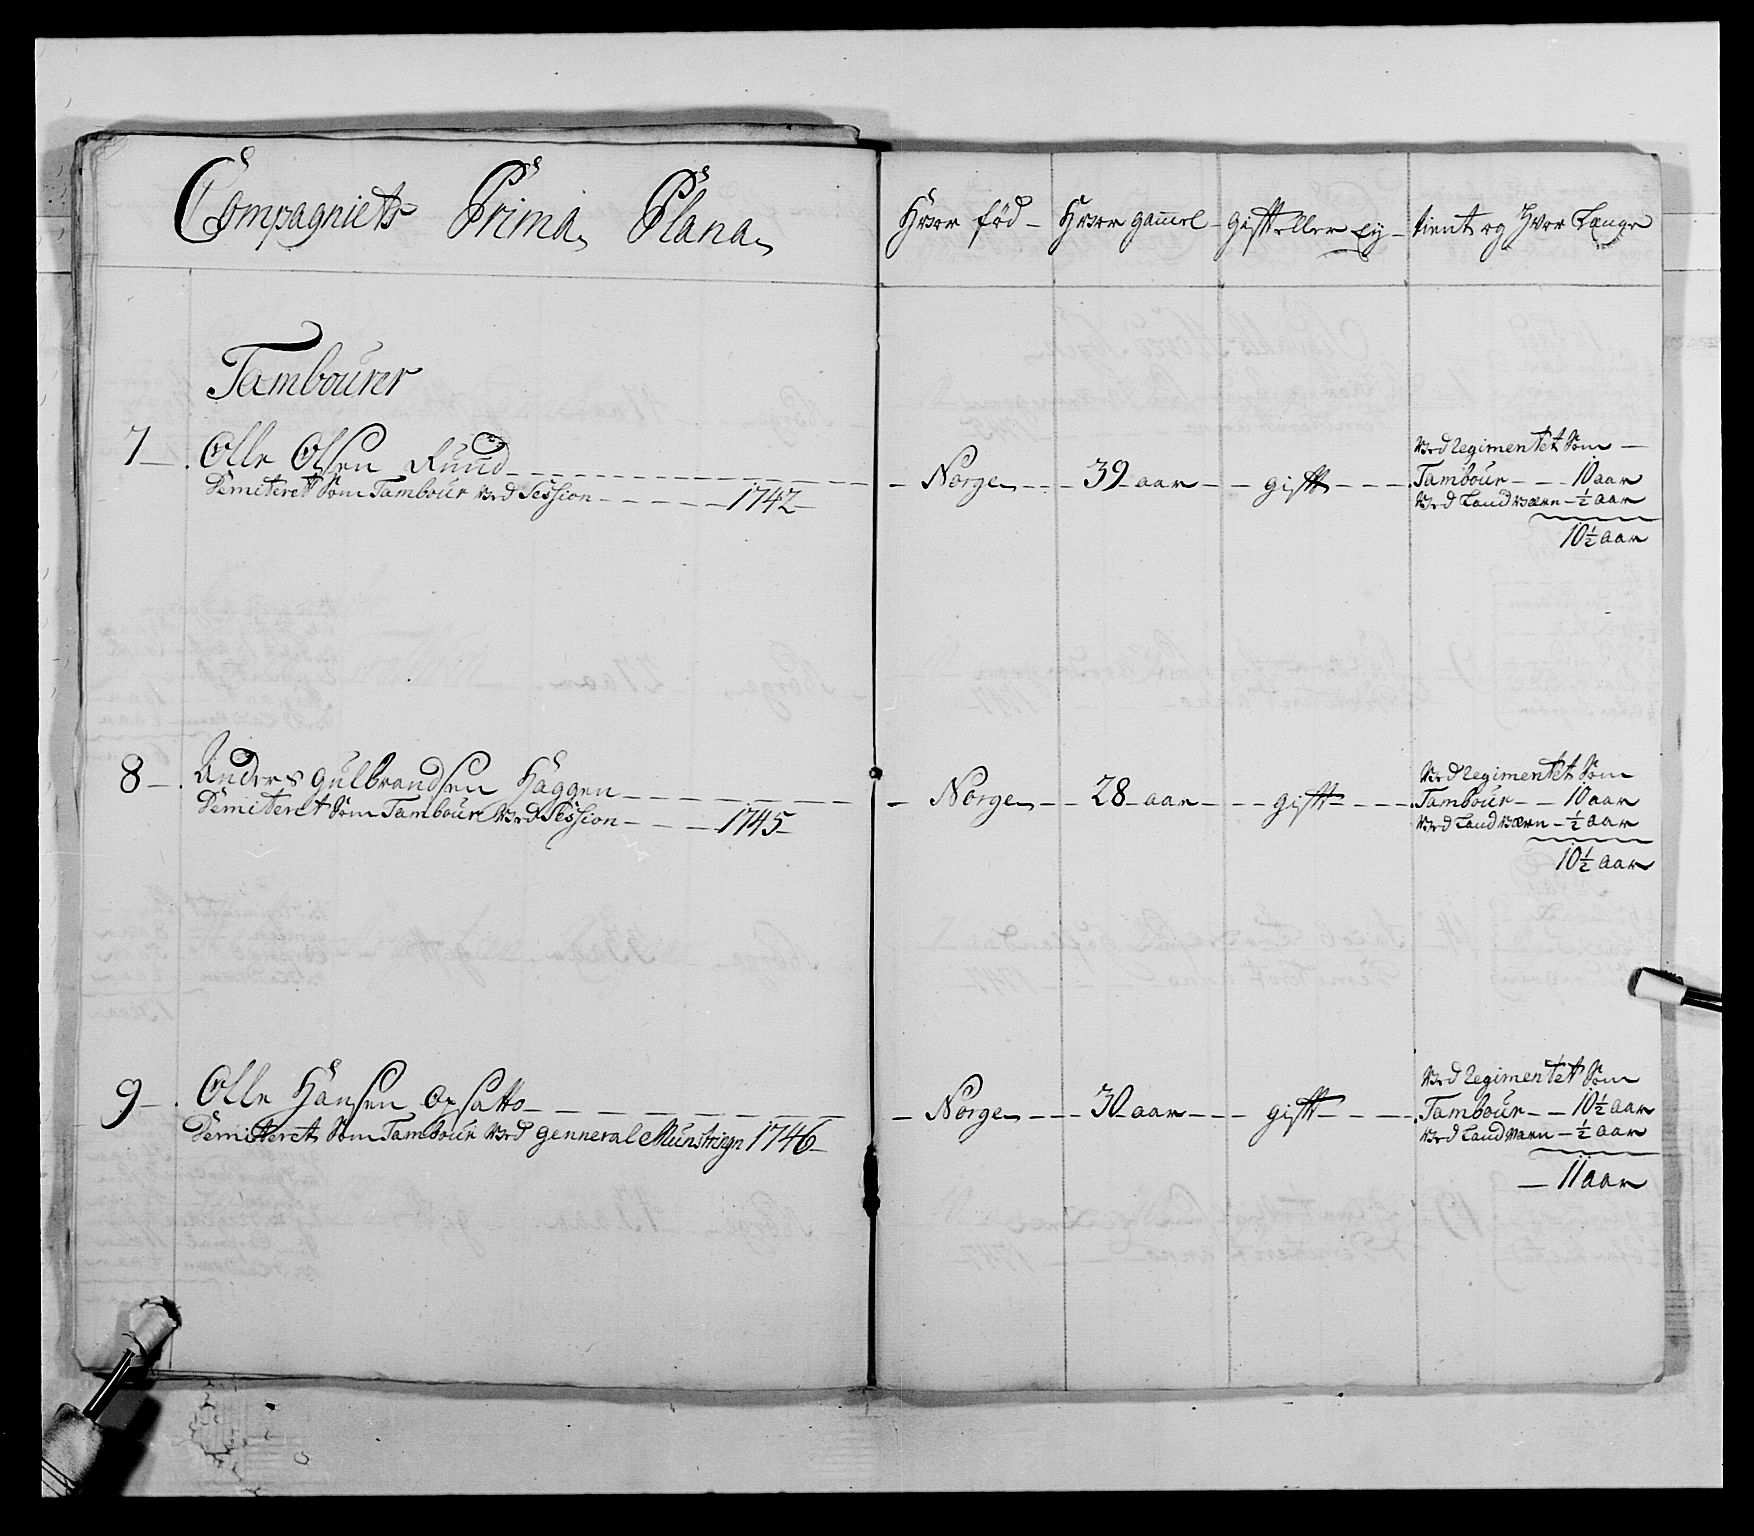 Compagniets Prima Plana
Hvor fød
Hvor gammel
gift eller Ey
tient og Hvor Længe
Tambourer
7 Olle Olsen Ruud
Demiteret Som Tambour ved Session 1742
Norge
39 aar
gift
ved regimentet Som
Tambour 10 aar
ved Land værn ½ aar
10½ aar
8 Anders gulbrandsen Haggen
Demiteret Som Tambour ved Session 1745
Norge
28 aar
gift
ved regimentet Som
Tambour 10 aar
ved Land værn ½ aar
10½ aar
9 Olle Hansen Opsatto
Demiteret Som Tambour ved genneral Munstrign 1746
Norge
30 aar
gift
ved regimentet Som
Tambour 10½ aar
ved Land værn ½ aar
11 aar